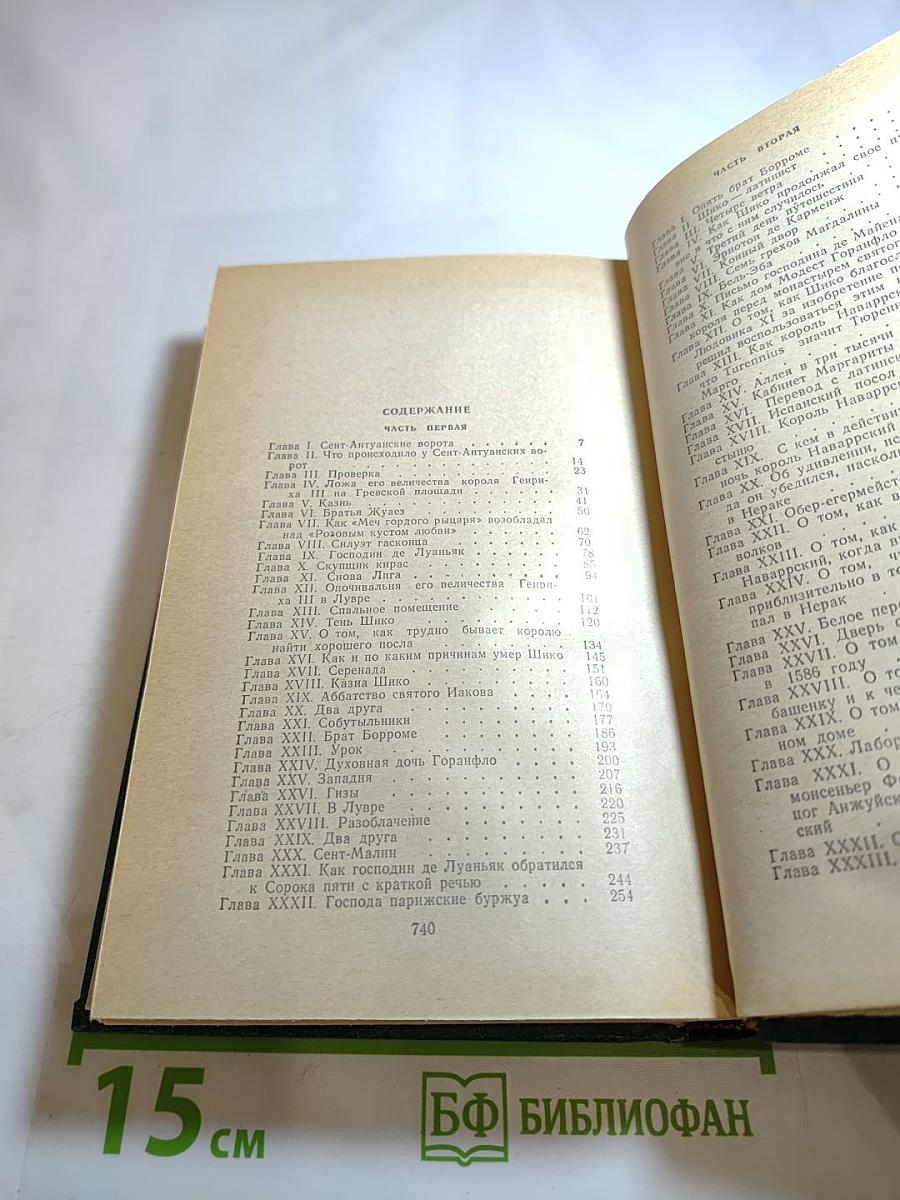 СОДЕРЖАНИЕ
ЧАСТЬ ПЕРВАЯ
Глава I. Сент-Антуанские ворота . . . . . . 7
Глава II. Что происходило у Сент-Антуанских во-
рот . . . . . . . . . . 14
Глава III. Проверка . . . . . . . . 23
Глава IV. Ложа его величества короля Генри-
ха III на Гревской площади . . . . . . 31
Глава V. Казнь . . . . . . . . 41
Глава VI. Братья Жуаез . . . . . . . 50
Глава VII. Как «Меч гордого рыцаря» возобладал
над «Розовым кустом любви» . . . . . . 62
Глава VIII. Силуэт гасконца . . . . . . 70
Глава IX. Господин де Луаньяк . . . . . . 78
Глава X. Скупщик кирас . . . . . . . 85
Глава XI. Снова Лига . . . . . . . 94
Глава XII. Опочивальня его величества Генри-
ха III в Лувре . . . . . . . . 101
Глава XIII. Спальное помещение . . . . . 112
Глава XIV. Тень Шико . . . . . . . 120
Глава XV. О том, как трудно бывает королю
найти хорошего посла . . . . . . . 134
Глава XVI. Как и по каким причинам умер Шико 145
Глава XVII. Серенада . . . . . . . 151
Глава XVIII. Казна Шико . . . . . . . 160
Глава XIX. Аббатство святого Иакова . . . . 164
Глава XX. Два друга . . . . . . . 170
Глава XXI. Собутыльники . . . . . . . 177
Глава XXII. Брат Борроме . . . . . . . 186
Глава XXIII. Урок . . . . . . . . 193
Глава XXIV. Духовная дочь Горанфло . . . . 200
Глава XXV. Западня . . . . . . . . 207
Глава XXVI. Гизы . . . . . . . . 216
Глава XXVII. В Лувре . . . . . . . 220
Глава XXVIII. Разоблачение . . . . . . 225
Глава XXIX. Два друга . . . . . . . 231
Глава XXX. Сент-Малин . . . . . . . 237
Глава XXXI. Как господин де Луаньяк обратился
к Сорока пяти с краткой речью . . . . . 244
Глава XXXII. Господа парижские буржуа . . . 254
740
ЧАСТЬ ВТОРАЯ
Глава I. Опять брат Борроме
Глава II. Шико — латинист
Четыре ветра
Глава IV. Как Шико продолжал свое
и что с ним случилось
Глава V. Третий день путешествия
Глава VI. Эрнотон де Карменж
Глава VII. Конный двор
Глава VIII. Семь грехов Магдалины
Глава IX. Бель-Эба
Глава X. Письмо господина де Майена
Глава XI. Как дом Модест Горанфло
короля перед монастырем святого
Глава XII. О том, как Шико благосл
Людовика XI за изобретение
решил воспользоваться этим
Глава XIII. Как король Наваррс
что Turennius значит Тюренн
Марго
Глава XIV. Аллея в три тысячи
Глава XV. Кабинет Маргариты
Глава XVI. Перевод с латинс
Глава XVII. Испанский посол
Глава XVIII. Король Наваррс
стыню
Глава XIX. С кем в действи
ночь король Наваррский
Глава XX. Об удивлении, ис
да он убедился, насколь
в Нераке
Глава XXI. Обер-егермейст
Глава XXII. О том, как в
волков
Глава XXIII. О том, как
Наваррский, когда в
Глава XXIV. О том, ч
приблизительно в те
пал в Нерак
Глава XXV. Белое пер
Глава XXVI. Дверь
Глава XXVII. О том
в 1586 году
Глава XXVIII. О то
башенку и к че
Глава XXIX. О том
ном доме
Глава XXX. Лабор
Глава XXXI. О
монсеньер Ф
цог Анжуйск
ский
Глава XXXII.
Глава XXXIII.
15 см
БФ БИБЛИОФАН